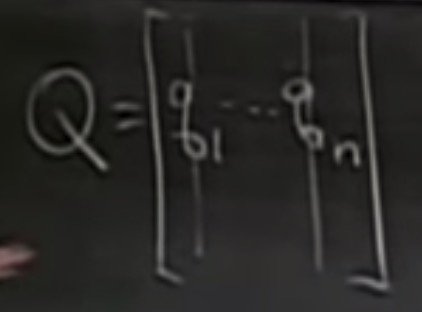 Q = [q1 ... qn]